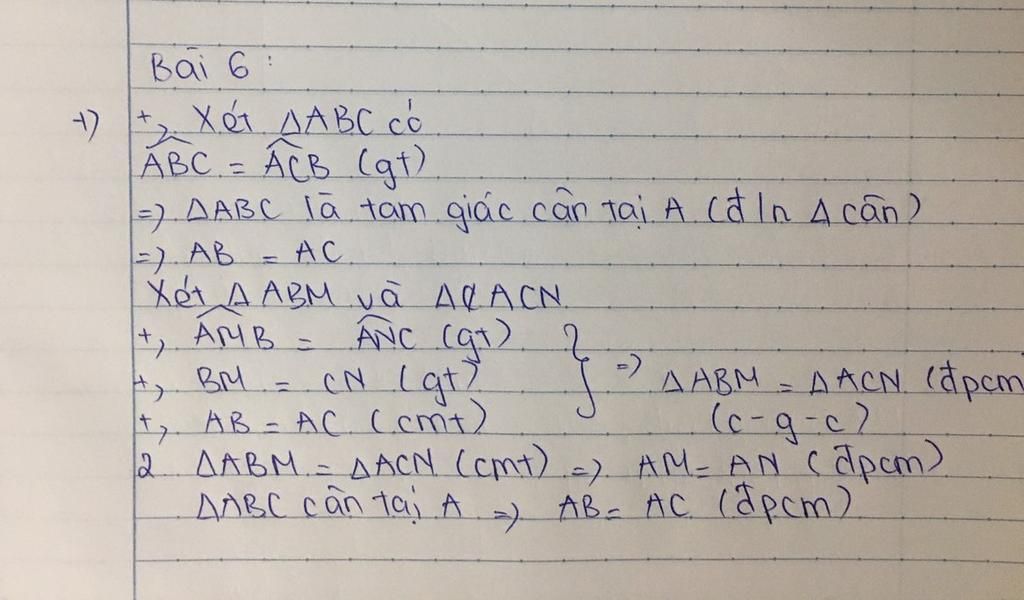 Bài 6:
+) +, Xét ΔABC có
ABC = ACB (gt)
=> ΔABC là tam giác cân tại A (đ ln Δ cân)
=> AB = AC
Xét Δ ABM và Δ ACN
+, AMB = ANC (gt)
+, BM = CN (gt) } => ΔABM = ΔACN (đpcm
+, AB = AC (cmt) (c-g-c)
2 ΔABM = ΔACN (cmt) => AM = AN (đpcm)
ΔABC cân tại A => AB = AC (đpcm)